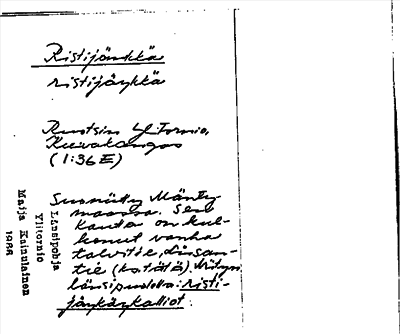 Ristijänkkä
ristijäŋkkä
Ruotsin Yl. Tornio,
Kuivakangas
(1:36 E)
Suoniitty Mänty-
maassa. Sen
kautta on kul-
kenut vanha
talvitie,
tie (ks tätä).
länsipuolella: risti-
jäŋkäŋkalliot.
Länsipohja
Ylitornio
Maija Kainulainen
1966